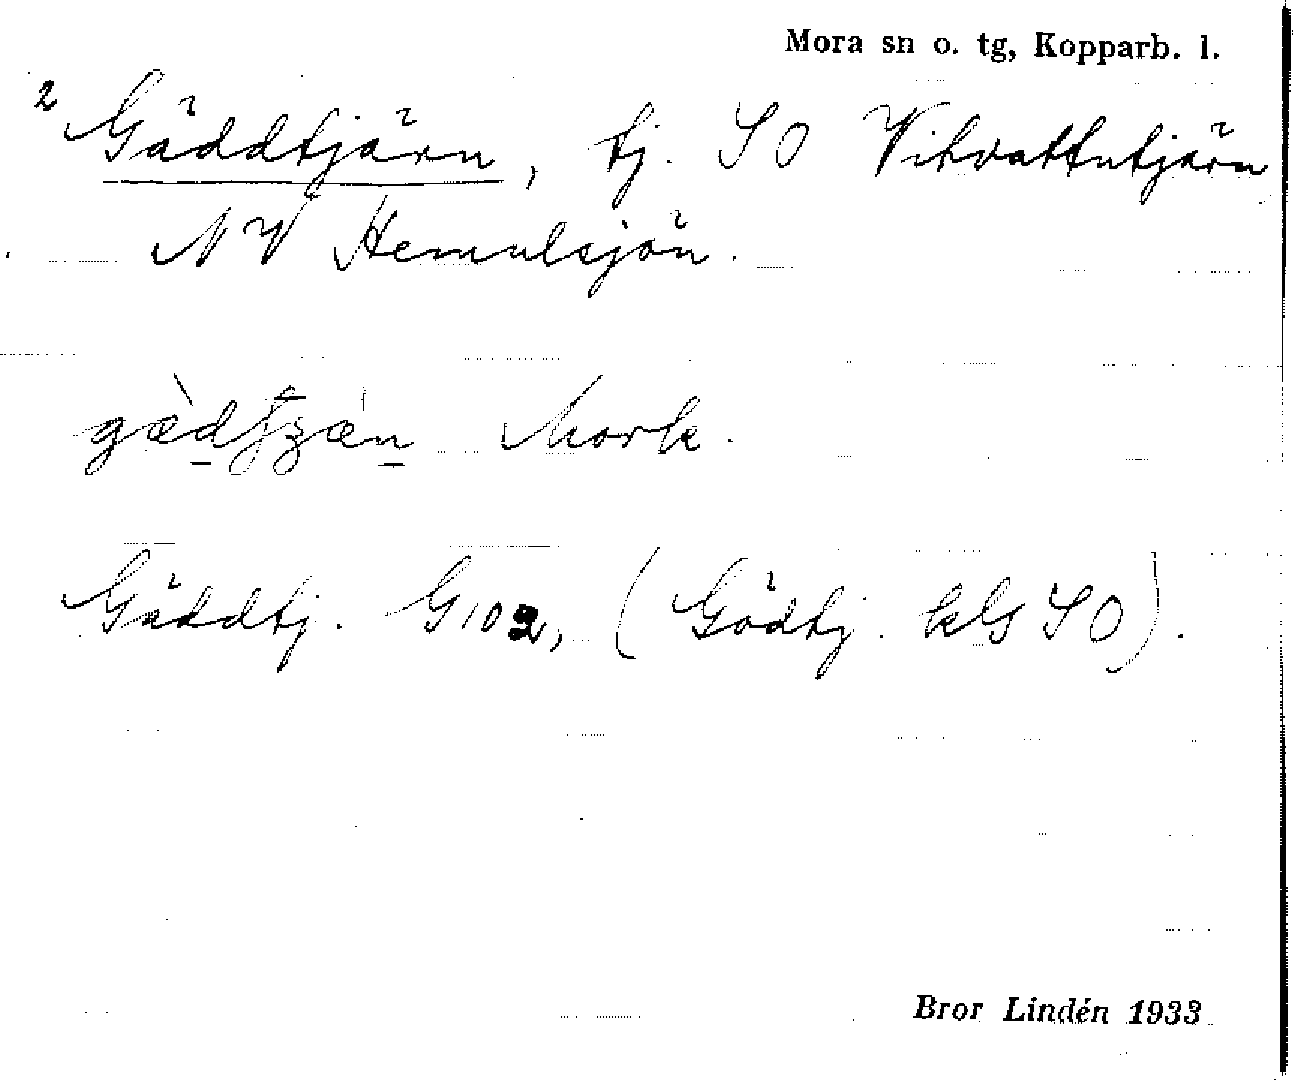 Mora sn o. tg, Kopparb. l.
2 Gäddtjärn, tj. SO Vitvattutjärn
NV Hemulsjön.
Mork.
Gäddtj. G102, (Gödtj. kls SO).
Bror Lindén 1933